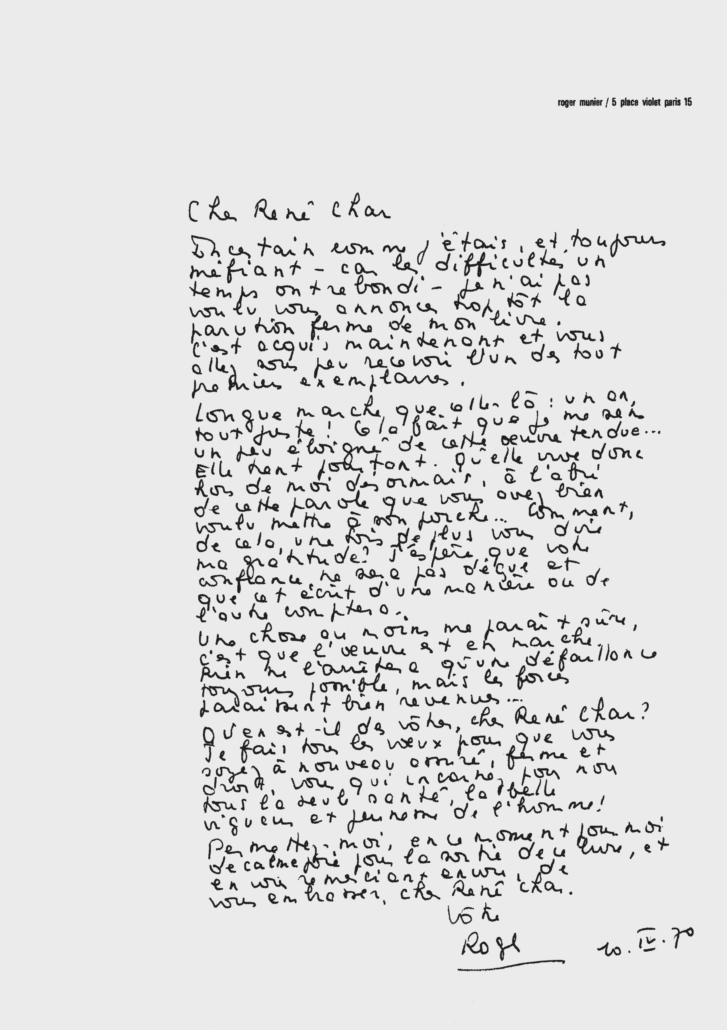 roger munier / 5 place violet paris 15
Cher René Char
Incertain comme j'étais, et toujours
méfiant – car les difficultés un
temps ont rebondi – je n'ai pas
voulu vous annoncer trop tôt la
parution ferme de mon livre.
C'est acquis maintenant et vous
allez sous peu recevoir l'un des tout
premiers exemplaires.
Longue marche que celle-là : un an,
tout juste ! Cela fait que je me sens
un peu éloigné de cette œuvre tendue...
Elle tient pourtant. Qu'elle vive donc
hors de moi désormais, à l'abri
de cette parole que vous avez bien
voulu mettre à son porche... Comment,
de cela, une fois de plus vous dire
ma gratitude ? J'espère que votre
confiance ne sera pas déçue et
que cet écrit d'une manière ou de
l'autre comptera.
Une chose au moins me paraît sûre,
c'est que l'œuvre est en marche.
Rien ne l'arrêtera qu'une défaillance
toujours possible, mais les forces
paraissent bien revenues...
Qu'en est-il des vôtres, cher René Char ?
Je fais tous les vœux pour que vous
soyez à nouveau assuré, ferme et
droit, vous qui incarnez pour nous
tous la seule santé, la belle
vigueur et jeunesse de l'homme !
Permettez-moi, en ce moment pour moi
de calme joie pour la sortie de ce livre, et
en vous remerciant encore, de
vous embrasser, cher René Char.
Vôtre
Roger
10.IV.70